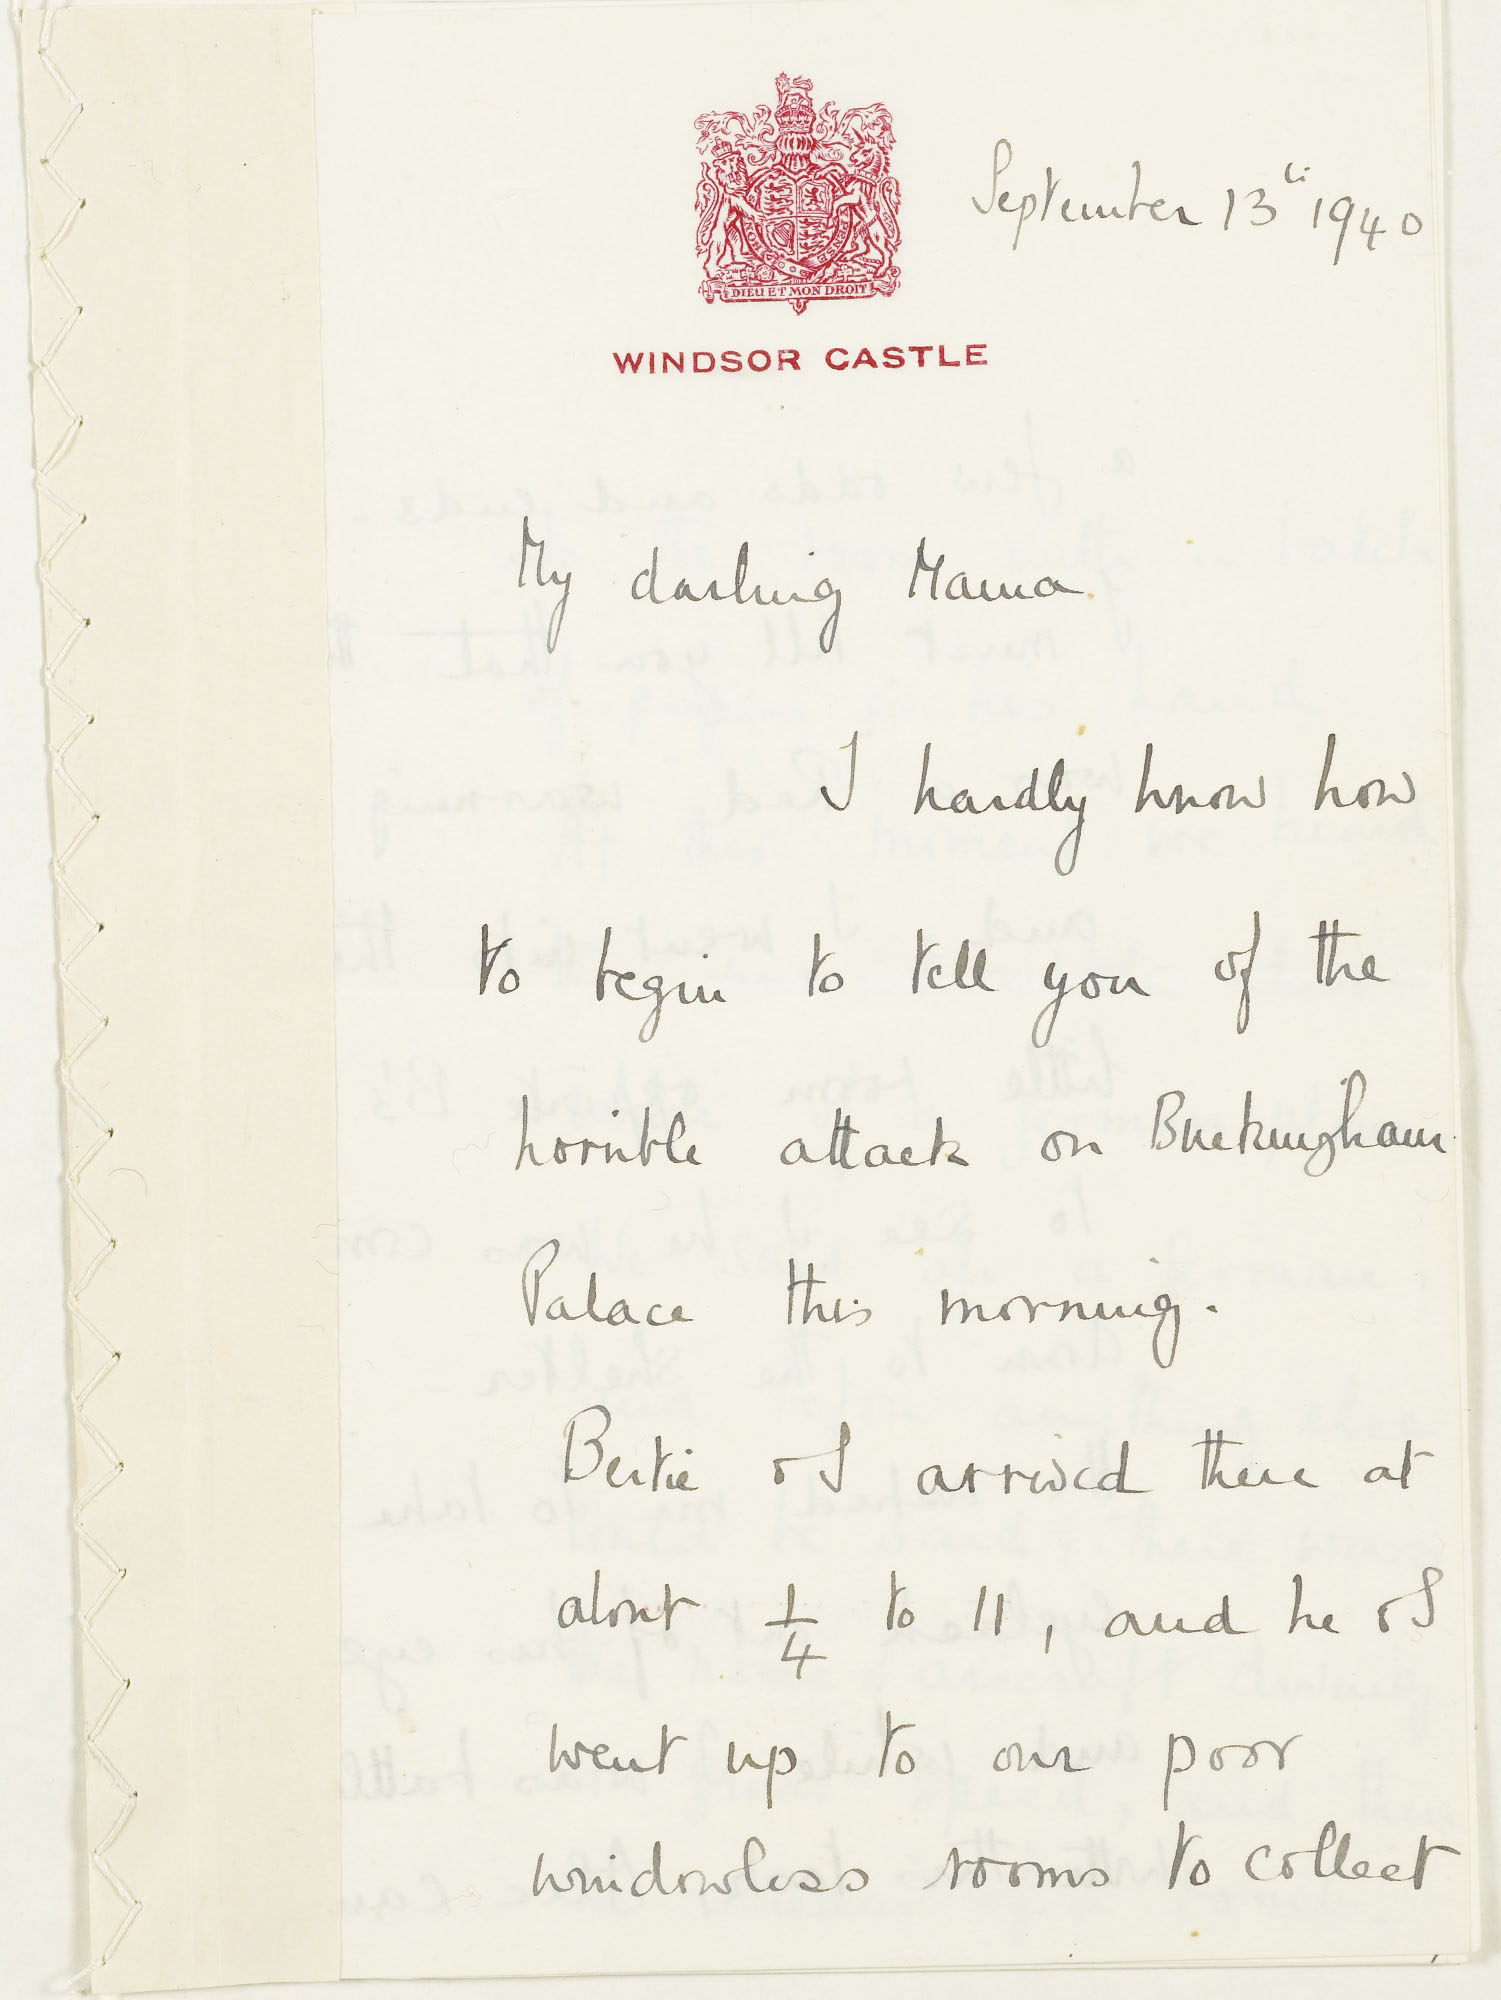 DIEU ET MON DROIT
WINDSOR CASTLE
September 13th 1940
My darling Mama
I hardly know how
to begin to tell you of the
horrible attack on Buckingham
Palace this morning.
Bertie & I arrived there at
about 1/4 to 11, and he & I
went up to our poor
windowless rooms to collect